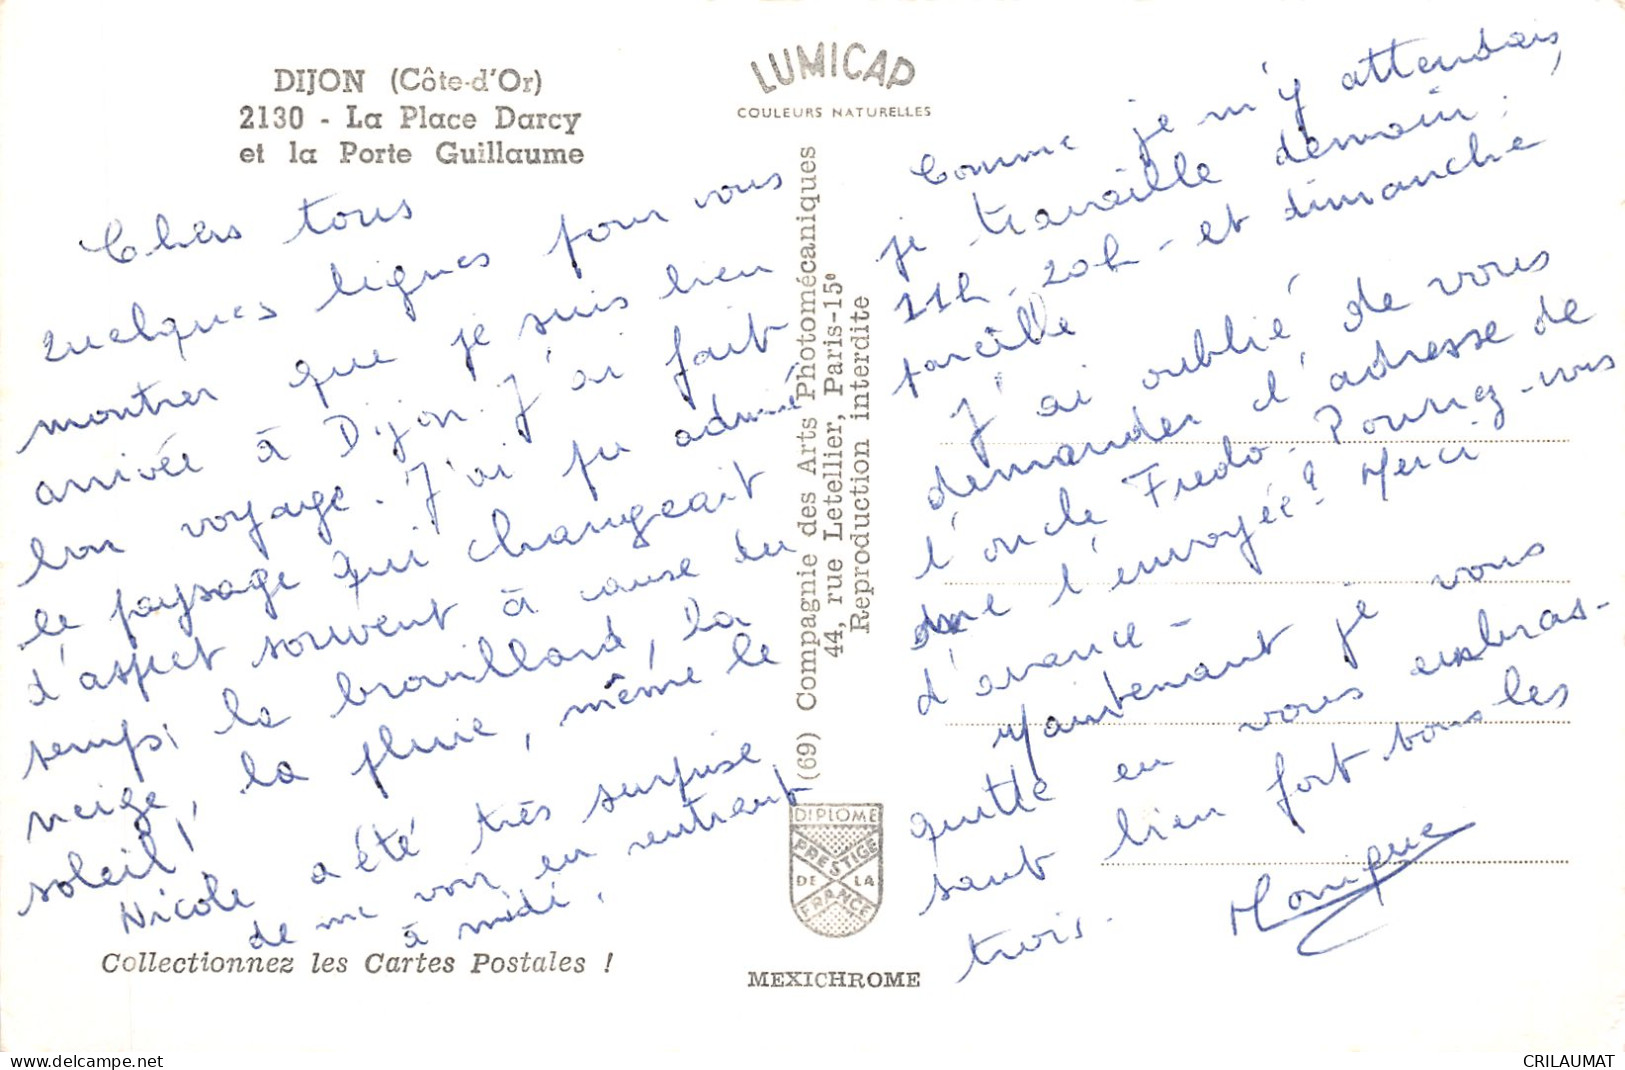 DIJON (Côte-d'Or)
2130 - La Place Darcy
et la Porte Guillaume
Chers tous
Quelques lignes pour vous
montrer que je suis bien
arrivée à Dijon. J'ai fait
bon voyage. J'ai pu admiré
le paysage qui changeait
d'aspect souvent à cause du
temps; le brouillard, la
neige, la pluie, même le
soleil!
Nicole a été très surprise
de me voir en rentrant
à midi.
Collectionnez les Cartes Postales !
LUMICAP
COULEURS NATURELLES
(69) Compagnie des Arts Photomécaniques
44, rue Letellier, Paris-15e
Reproduction interdite
DIPLOME
PRESTIGE
DE LA
FRANCE
MEXICHROME
Comme je m'y attendais,
je travaille demain:
11h - 20h - et dimanche
pareille
J'ai oublié de vous
demander l'adresse de
l'oncle Fredo. Pourriez-vous
me l'envoyée? Merci
d'avance -
Maintenant je vous
quitte en vous embras-
sant bien fort tous les
trois.
Monique
www.delcampe.net
CRILAUMAT